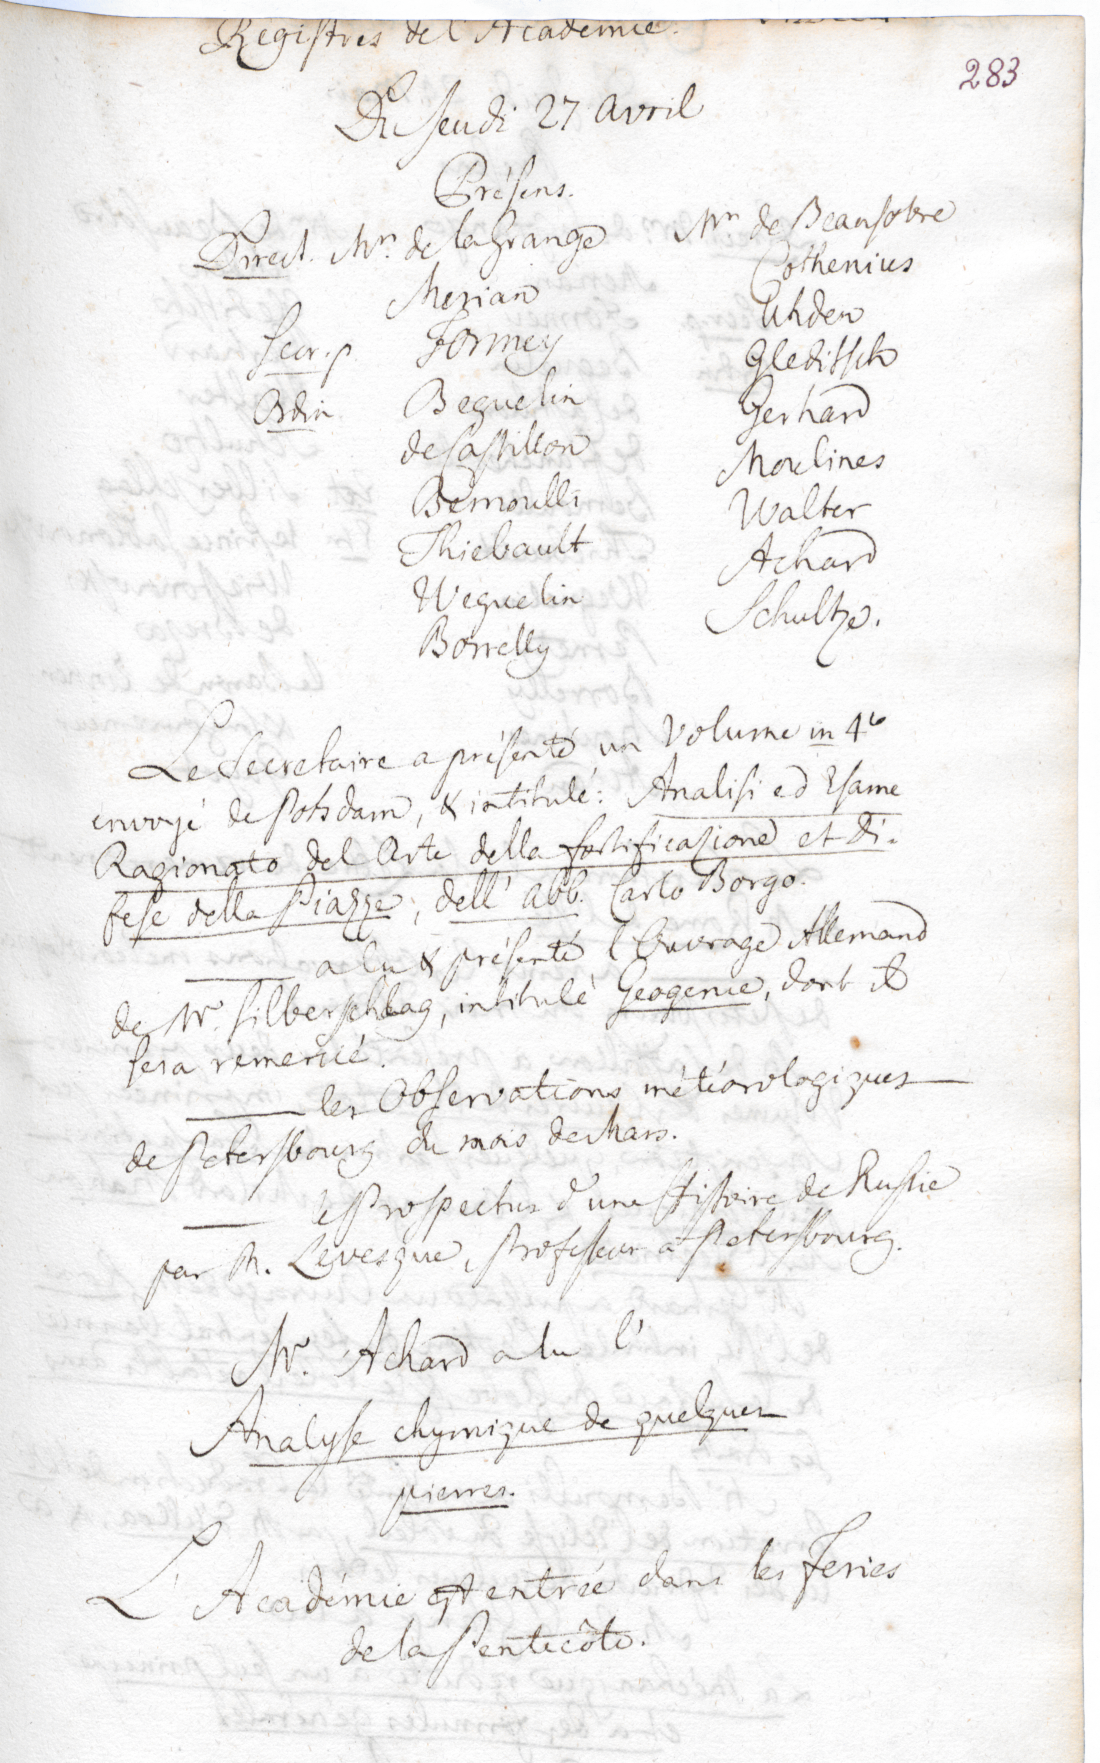 Registres de l'Academie.
283
Du Jeudi 27 Avril
Présens.
Direct. Mr. de la Grange
Merian
Secr. p. Formey
Ordin. Beguelin
de Castillon
Bernoulli
Thiebault
Weguelin
Borrelly
Mrs de Beausobre
Cothenius
Uhden
Gleditsch
Gerhard
Moulines
Walter
Achard
Schultze.
Le Secretaire a présenté un Volume in 4to
envoyé de Potsdam, & intitulé: Analisi ed Esame
Ragionato del Arte della fortificazione et di-
fese della Piazze, dell' abb. Carlo Borgo.
——— a lu & présenté l'Ouvrage Allemand
de Mr. Silberschlag, intitulé Geogenie, dont il
sera remercié.
——— les Observations météorologiques
de Petersbourg du mois de Mars.
——— le Prospectus d'une Histoire de Russie
par M. Levesque, Professeur à Petersbourg.
Mr. Achard a lu l'
Analyse chymique de quelques
pierres.
L'Académie est entrée dans les Feries
de la Pentecôte.